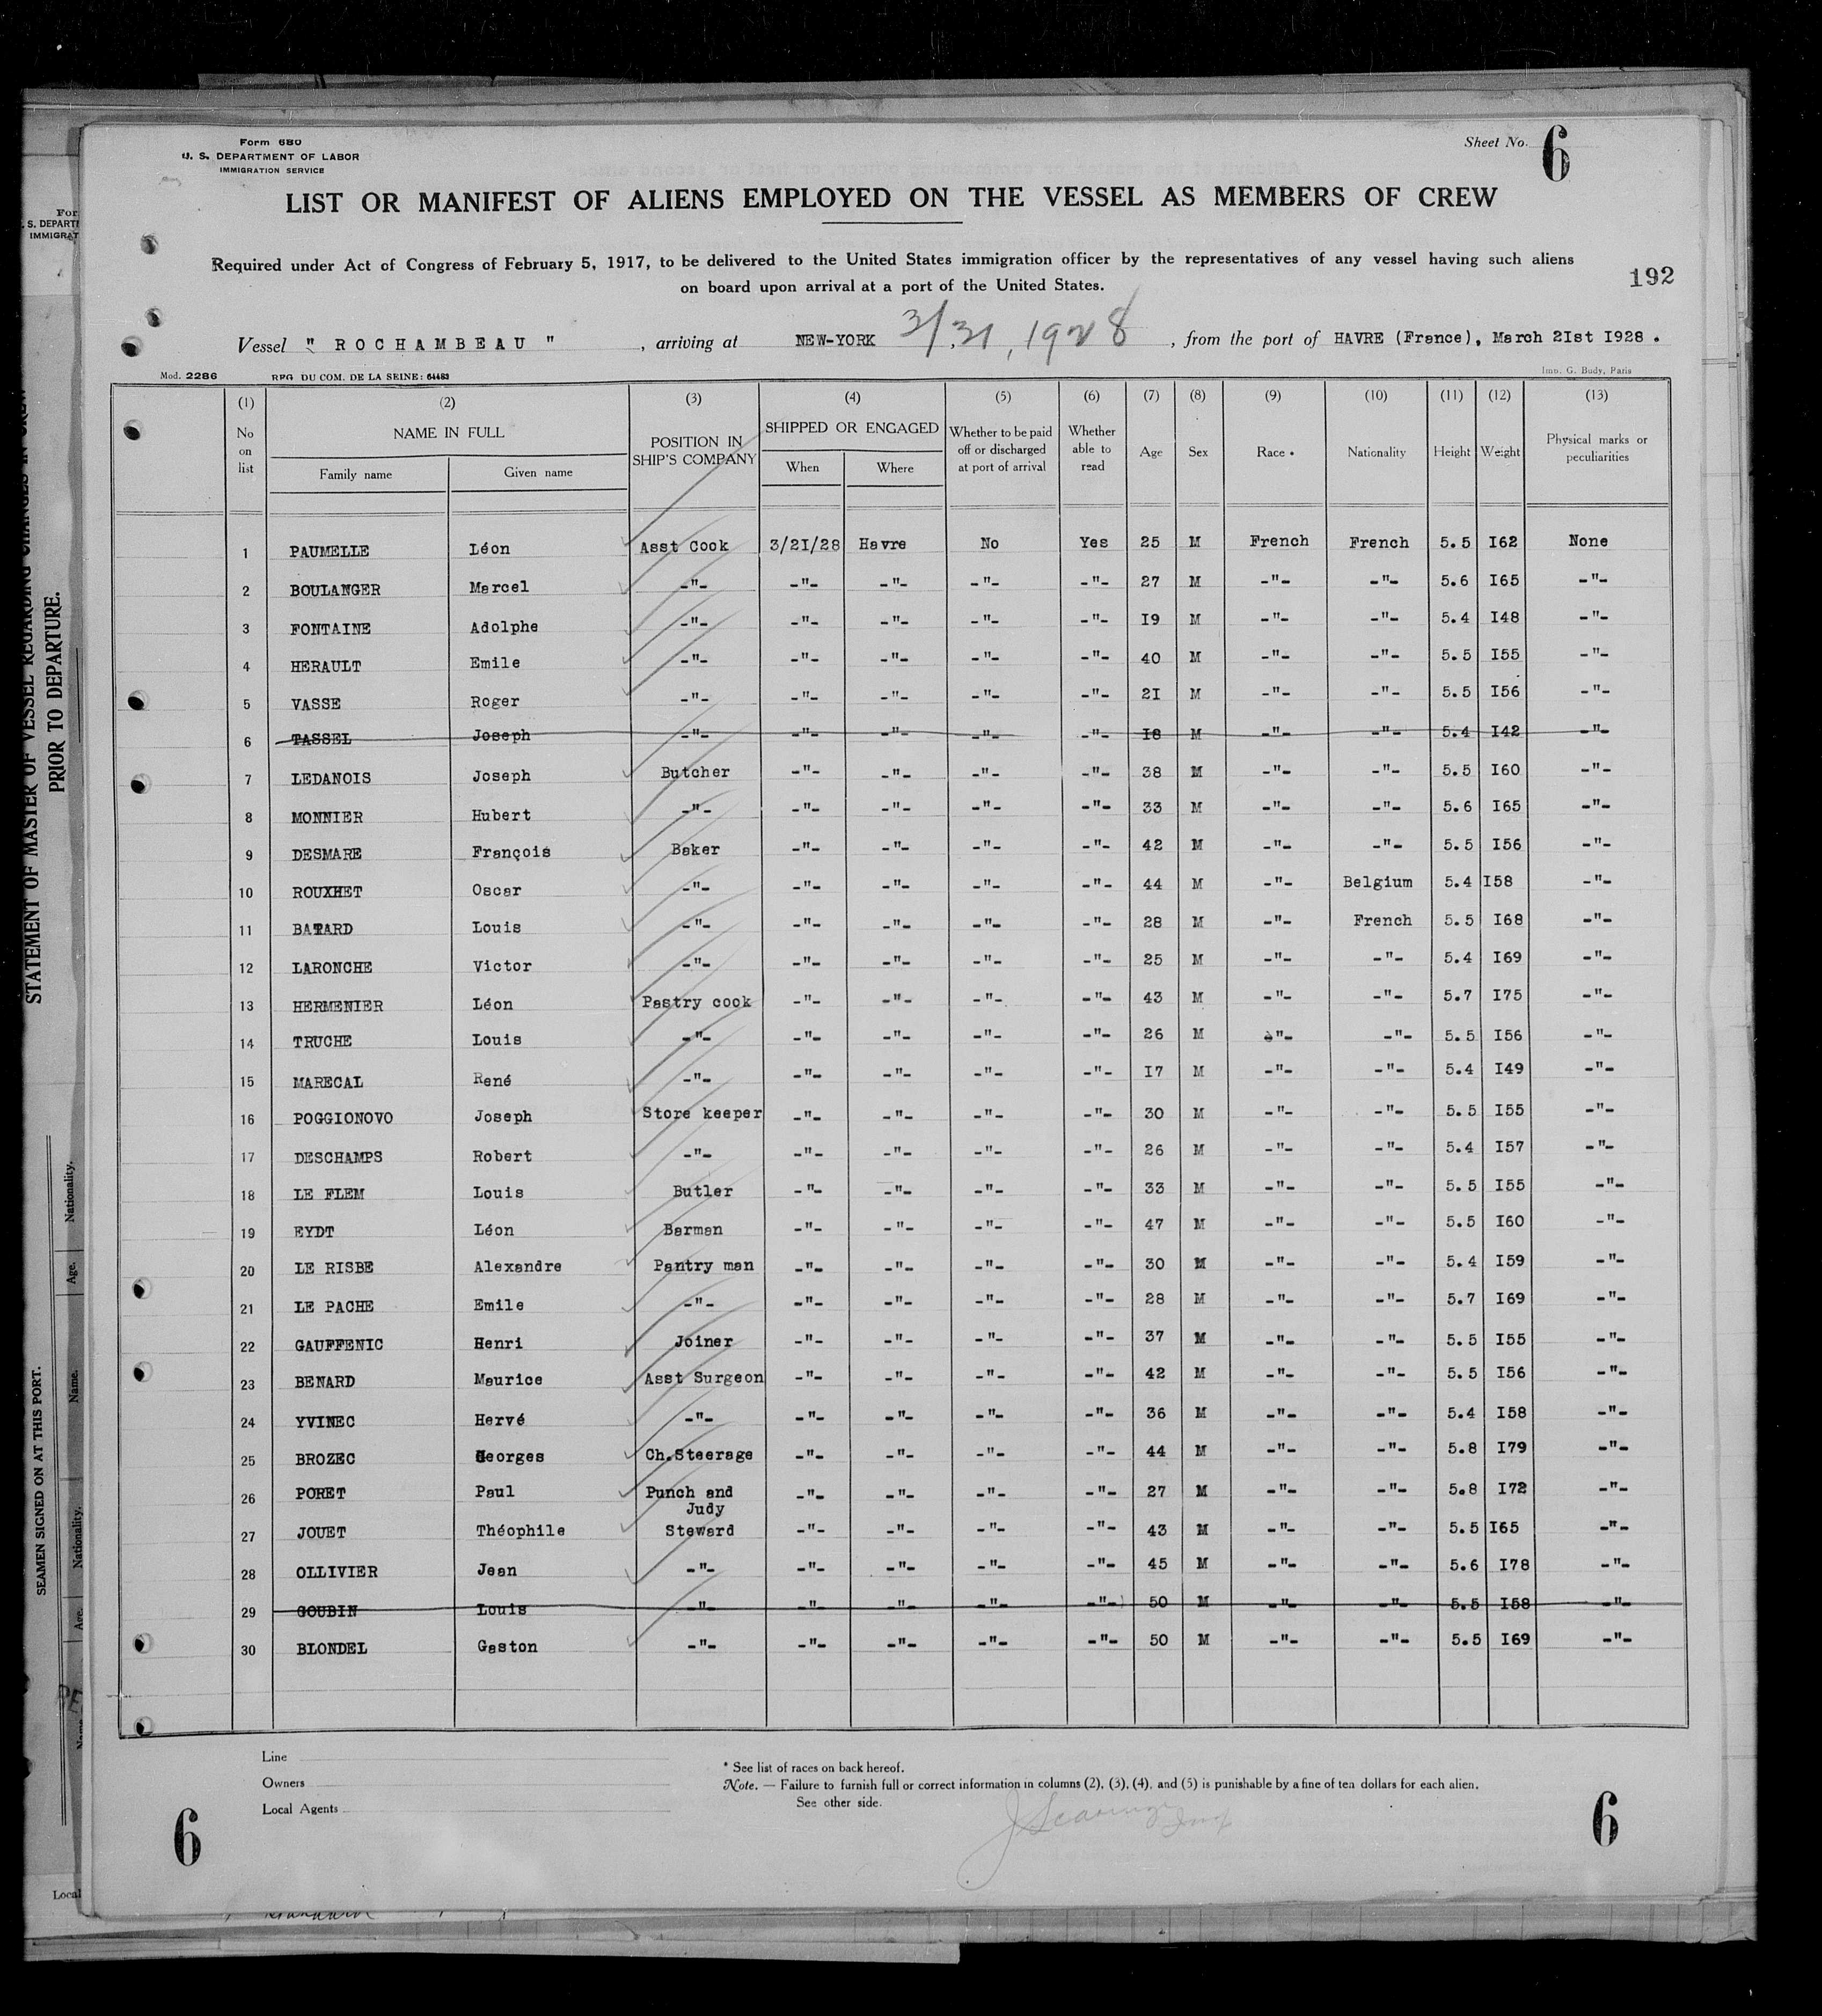 Form 680
U. S. DEPARTMENT OF LABOR
IMMIGRATION SERVICE
Sheet No. 6
LIST OR MANIFEST OF ALIENS EMPLOYED ON THE VESSEL AS MEMBERS OF CREW
Required under Act of Congress of February 5, 1917, to be delivered to the United States immigration officer by the representatives of any vessel having such aliens
on board upon arrival at a port of the United States.
192
Vessel " ROCHAMBEAU ", arriving at NEW-YORK 3/31, 1928, from the port of HAVRE (France), March 2Ist I928.
Mod. 2286 REG DU COM. DE LA SEINE: 64483 Imp. G. Body, Paris
(1) (2) (3) (4) (5) (6) (7) (8) (9) (10) (11) (12) (13)
No on list NAME IN FULL Family name Given name POSITION IN SHIP'S COMPANY SHIPPED OR ENGAGED When Where Whether to be paid off or discharged at port of arrival Whether able to read Age Sex Race * Nationality Height Weight Physical marks or peculiarities
1 PAUMELLE Léon Asst Cook 3/2I/28 Havre No Yes 25 M French French 5.5 I62 None
2 BOULANGER Marcel -"- -"- -"- -"- -"- 27 M -"- -"- 5.6 I65 -"-
3 FONTAINE Adolphe -"- -"- -"- -"- -"- I9 M -"- -"- 5.4 I48 -"-
4 HERAULT Emile -"- -"- -"- -"- -"- 40 M -"- -"- 5.5 I55 -"-
5 VASSE Roger -"- -"- -"- -"- -"- 2I M -"- -"- 5.5 I56 -"-
6 TASSEL Joseph -"- -"- -"- -"- -"- I8 M -"- -"- 5.4 I42 -"-
7 LEDANOIS Joseph Butcher -"- -"- -"- -"- 38 M -"- -"- 5.5 I60 -"-
8 MONNIER Hubert -"- -"- -"- -"- -"- 33 M -"- -"- 5.6 I65 -"-
9 DESMARE François Baker -"- -"- -"- -"- 42 M -"- -"- 5.5 I56 -"-
10 ROUXHET Oscar -"- -"- -"- -"- -"- 44 M -"- Belgium 5.4 I58 -"-
11 BATARD Louis -"- -"- -"- -"- -"- 28 M -"- French 5.5 I68 -"-
12 LARONCHE Victor -"- -"- -"- -"- -"- 25 M -"- -"- 5.4 I69 -"-
13 HERMENIER Léon Pastry cook -"- -"- -"- -"- 43 M -"- -"- 5.7 I75 -"-
14 TRUCHE Louis -"- -"- -"- -"- -"- 26 M -"- -"- 5.5 I56 -"-
15 MARECAL René -"- -"- -"- -"- -"- I7 M -"- -"- 5.4 I49 -"-
16 POGGIONOVO Joseph Store keeper -"- -"- -"- -"- 30 M -"- -"- 5.5 I55 -"-
17 DESCHAMPS Robert -"- -"- -"- -"- -"- 26 M -"- -"- 5.4 I57 -"-
18 LE FLEM Louis Butler -"- -"- -"- -"- 33 M -"- -"- 5.5 I55 -"-
19 EYDT Léon Barman -"- -"- -"- -"- 47 M -"- -"- 5.5 I60 -"-
20 LE RISBE Alexandre Pantry man -"- -"- -"- -"- 30 M -"- -"- 5.4 I59 -"-
21 LE PACHE Emile -"- -"- -"- -"- -"- 28 M -"- -"- 5.7 I69 -"-
22 GAUFFENIC Henri Joiner -"- -"- -"- -"- 37 M -"- -"- 5.5 I55 -"-
23 BENARD Maurice Asst Surgeon -"- -"- -"- -"- 42 M -"- -"- 5.5 I56 -"-
24 YVINEC Hervé -"- -"- -"- -"- -"- 36 M -"- -"- 5.4 I58 -"-
25 BROZEC Georges Ch.Steerage -"- -"- -"- -"- 44 M -"- -"- 5.8 I79 -"-
26 PORET Paul Punch and Judy -"- -"- -"- -"- 27 M -"- -"- 5.8 I72 -"-
27 JOUET Théophile Steward -"- -"- -"- -"- 43 M -"- -"- 5.5 I65 -"-
28 OLLIVIER Jean -"- -"- -"- -"- -"- 45 M -"- -"- 5.6 I78 -"-
29 GOUBIN Louis -"- -"- -"- -"- -"- 50 M -"- -"- 5.5 I58 -"-
30 BLONDEL Gaston -"- -"- -"- -"- -"- 50 M -"- -"- 5.5 I69 -"-
Line
Owners
Local Agents
* See list of races on back hereof.
Note. — Failure to furnish full or correct information in columns (2), (3), (4), and (5) is punishable by a fine of ten dollars for each alien.
See other side.
6
6
STATEMENT OF MASTER OF VESSEL REGARDING CHANGES IN CREW
PRIOR TO DEPARTURE.
SEAMEN SIGNED ON AT THIS PORT.
Nationality.
Age.
Name.
Nationality.
Age.
Local